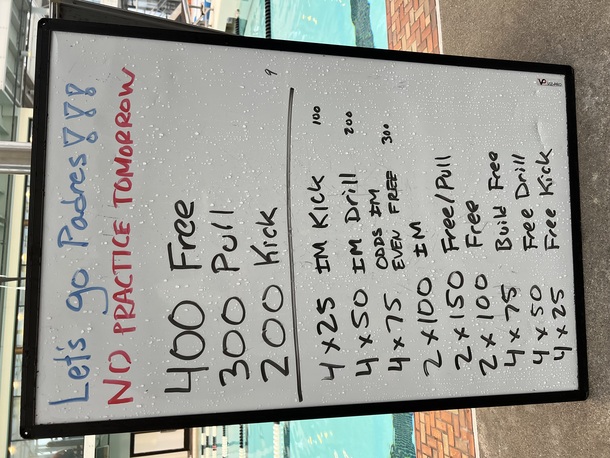 Let's go Padres!!!
NO PRACTICE TOMORROW
400 Free
300 Pull
200 Kick 9
4x25 IM Kick 100
4x50 IM Drill 200
4x75 ODDS IM EVEN FREE 300
2x100 IM
2x150 Free/Pull
2x100 Free
4x75 Build Free
4x50 Free Drill
4x25 Free Kick